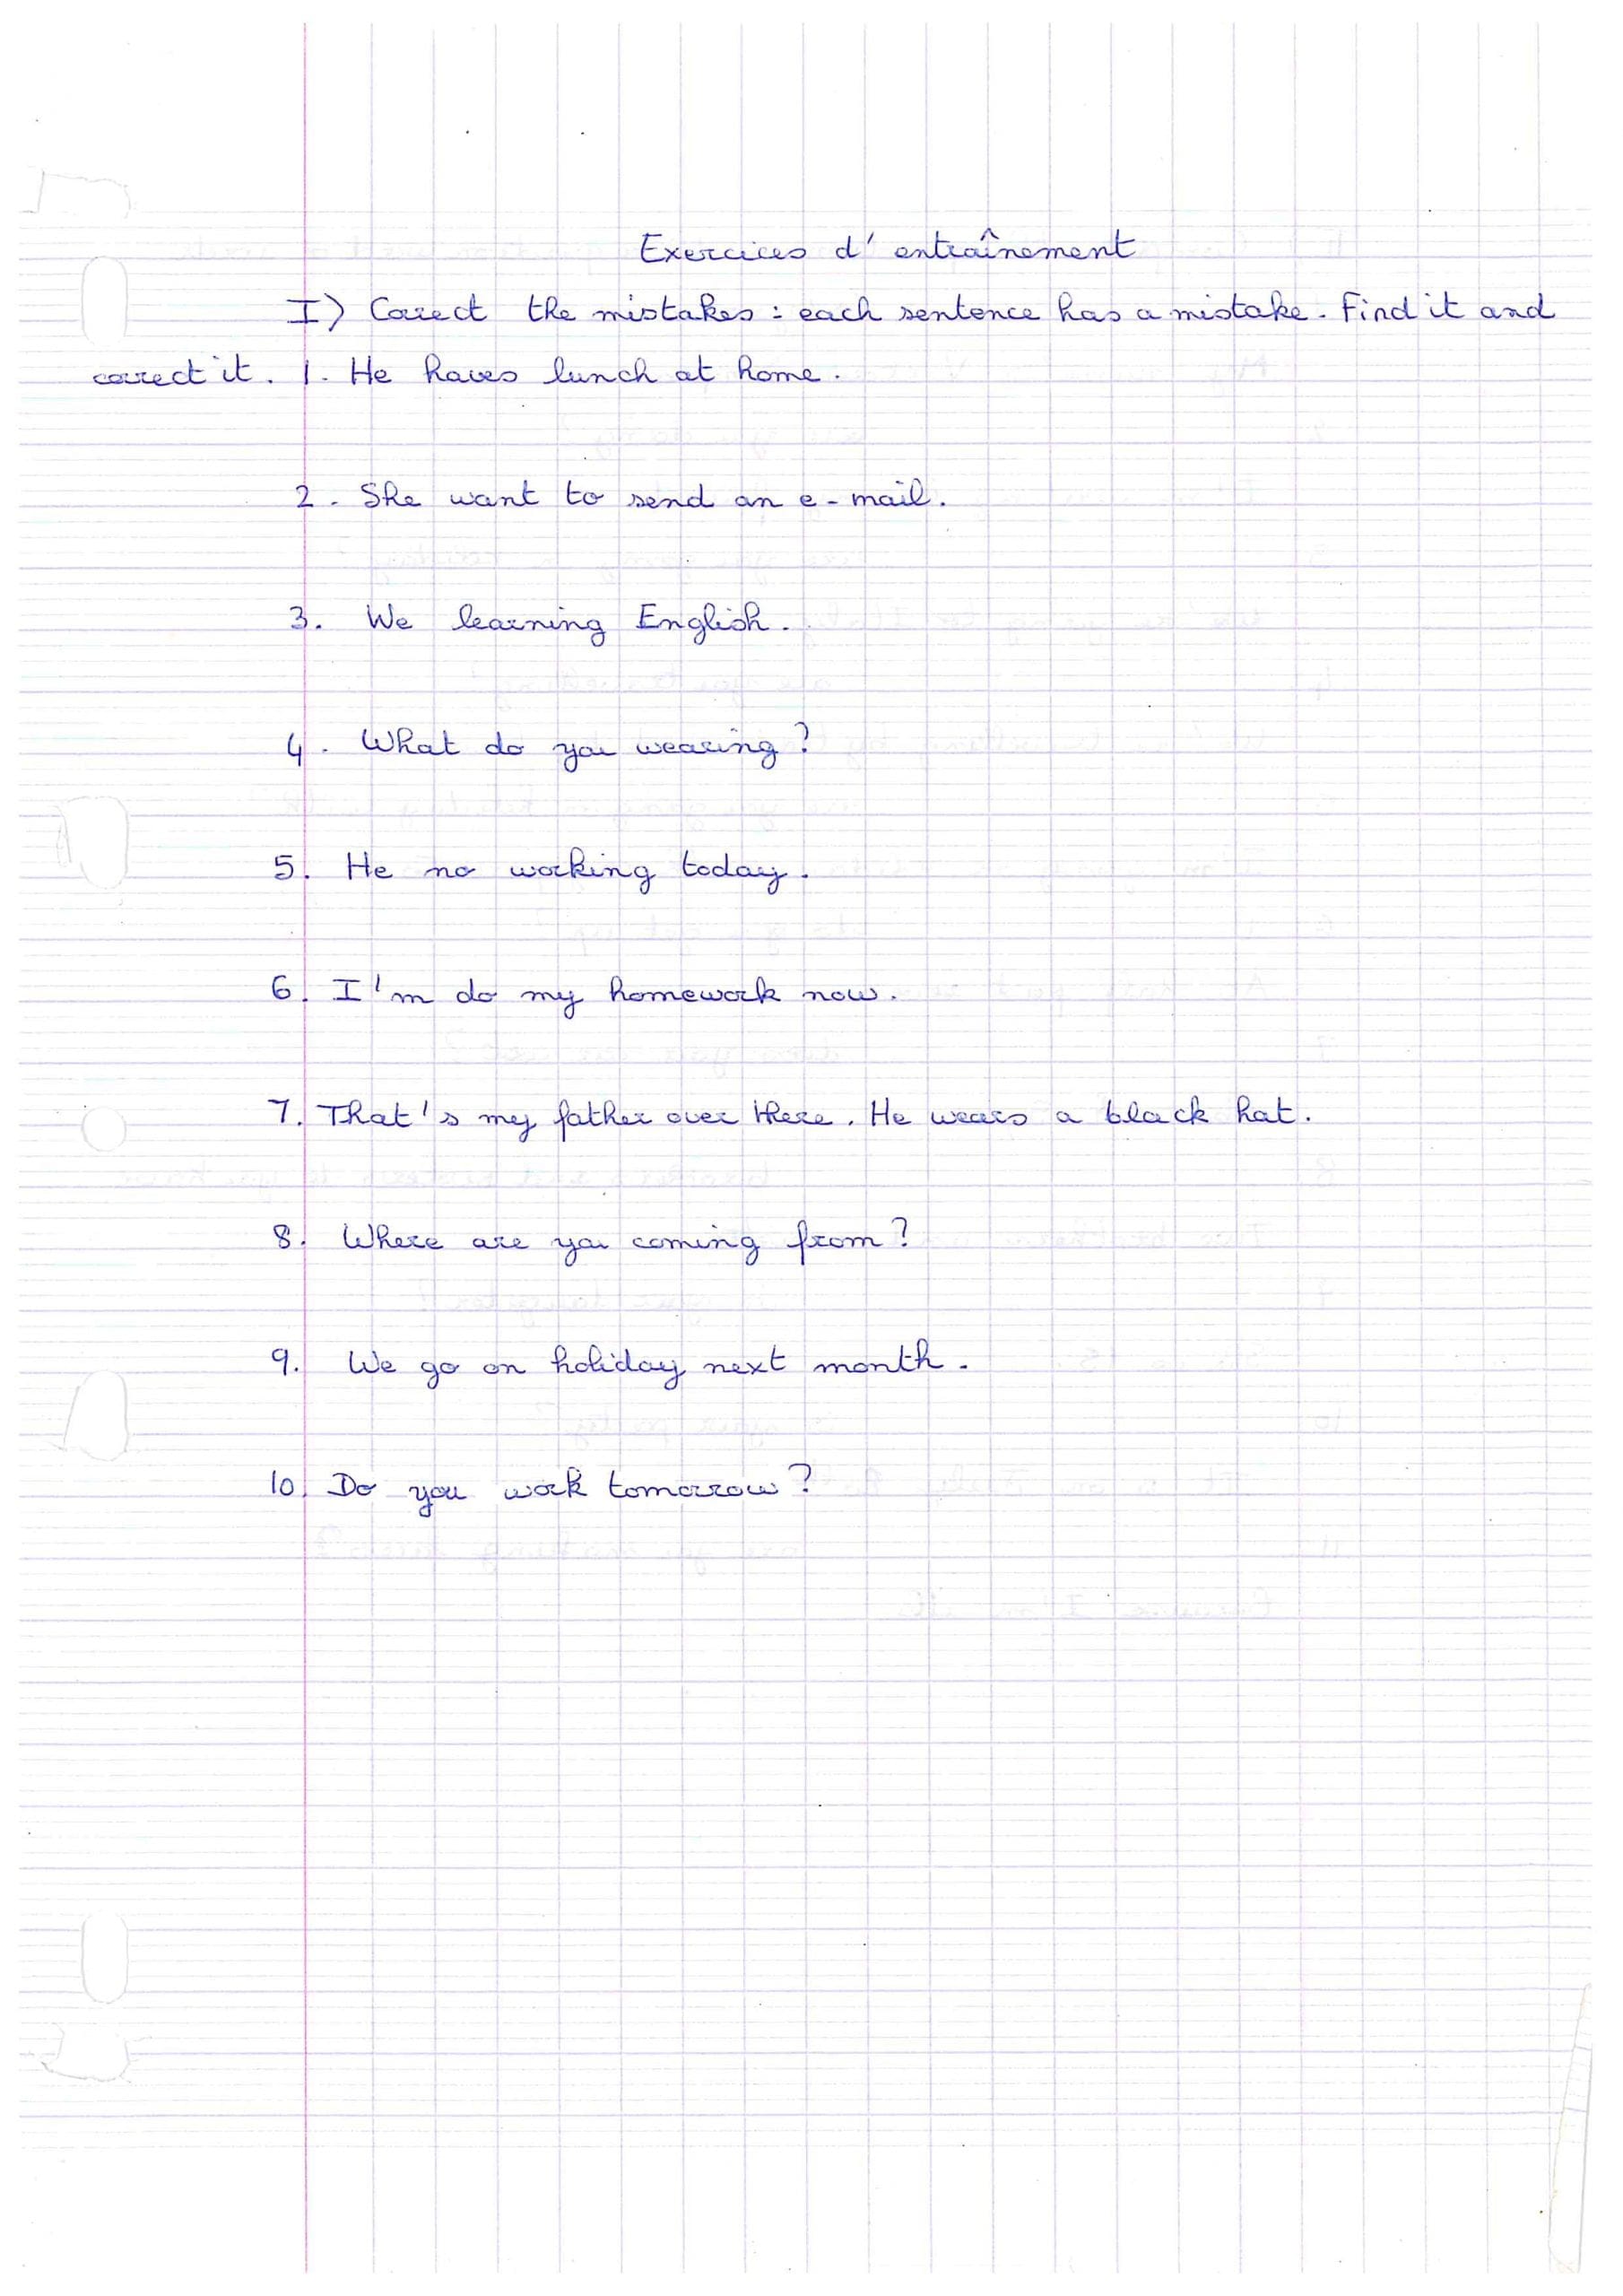 Exercices d'entraînement
I) Correct the mistakes : each sentence has a mistake. Find it and
correct it. 1. He haves lunch at home.
2. She want to send an e-mail.
3. We learning English.
4. What do you wearing ?
5. He no working today.
6. I'm do my homework now.
7. That's my father over there. He wears a black hat.
8. Where are you coming from ?
9. We go on holiday next month.
10. Do you work tomorrow ?